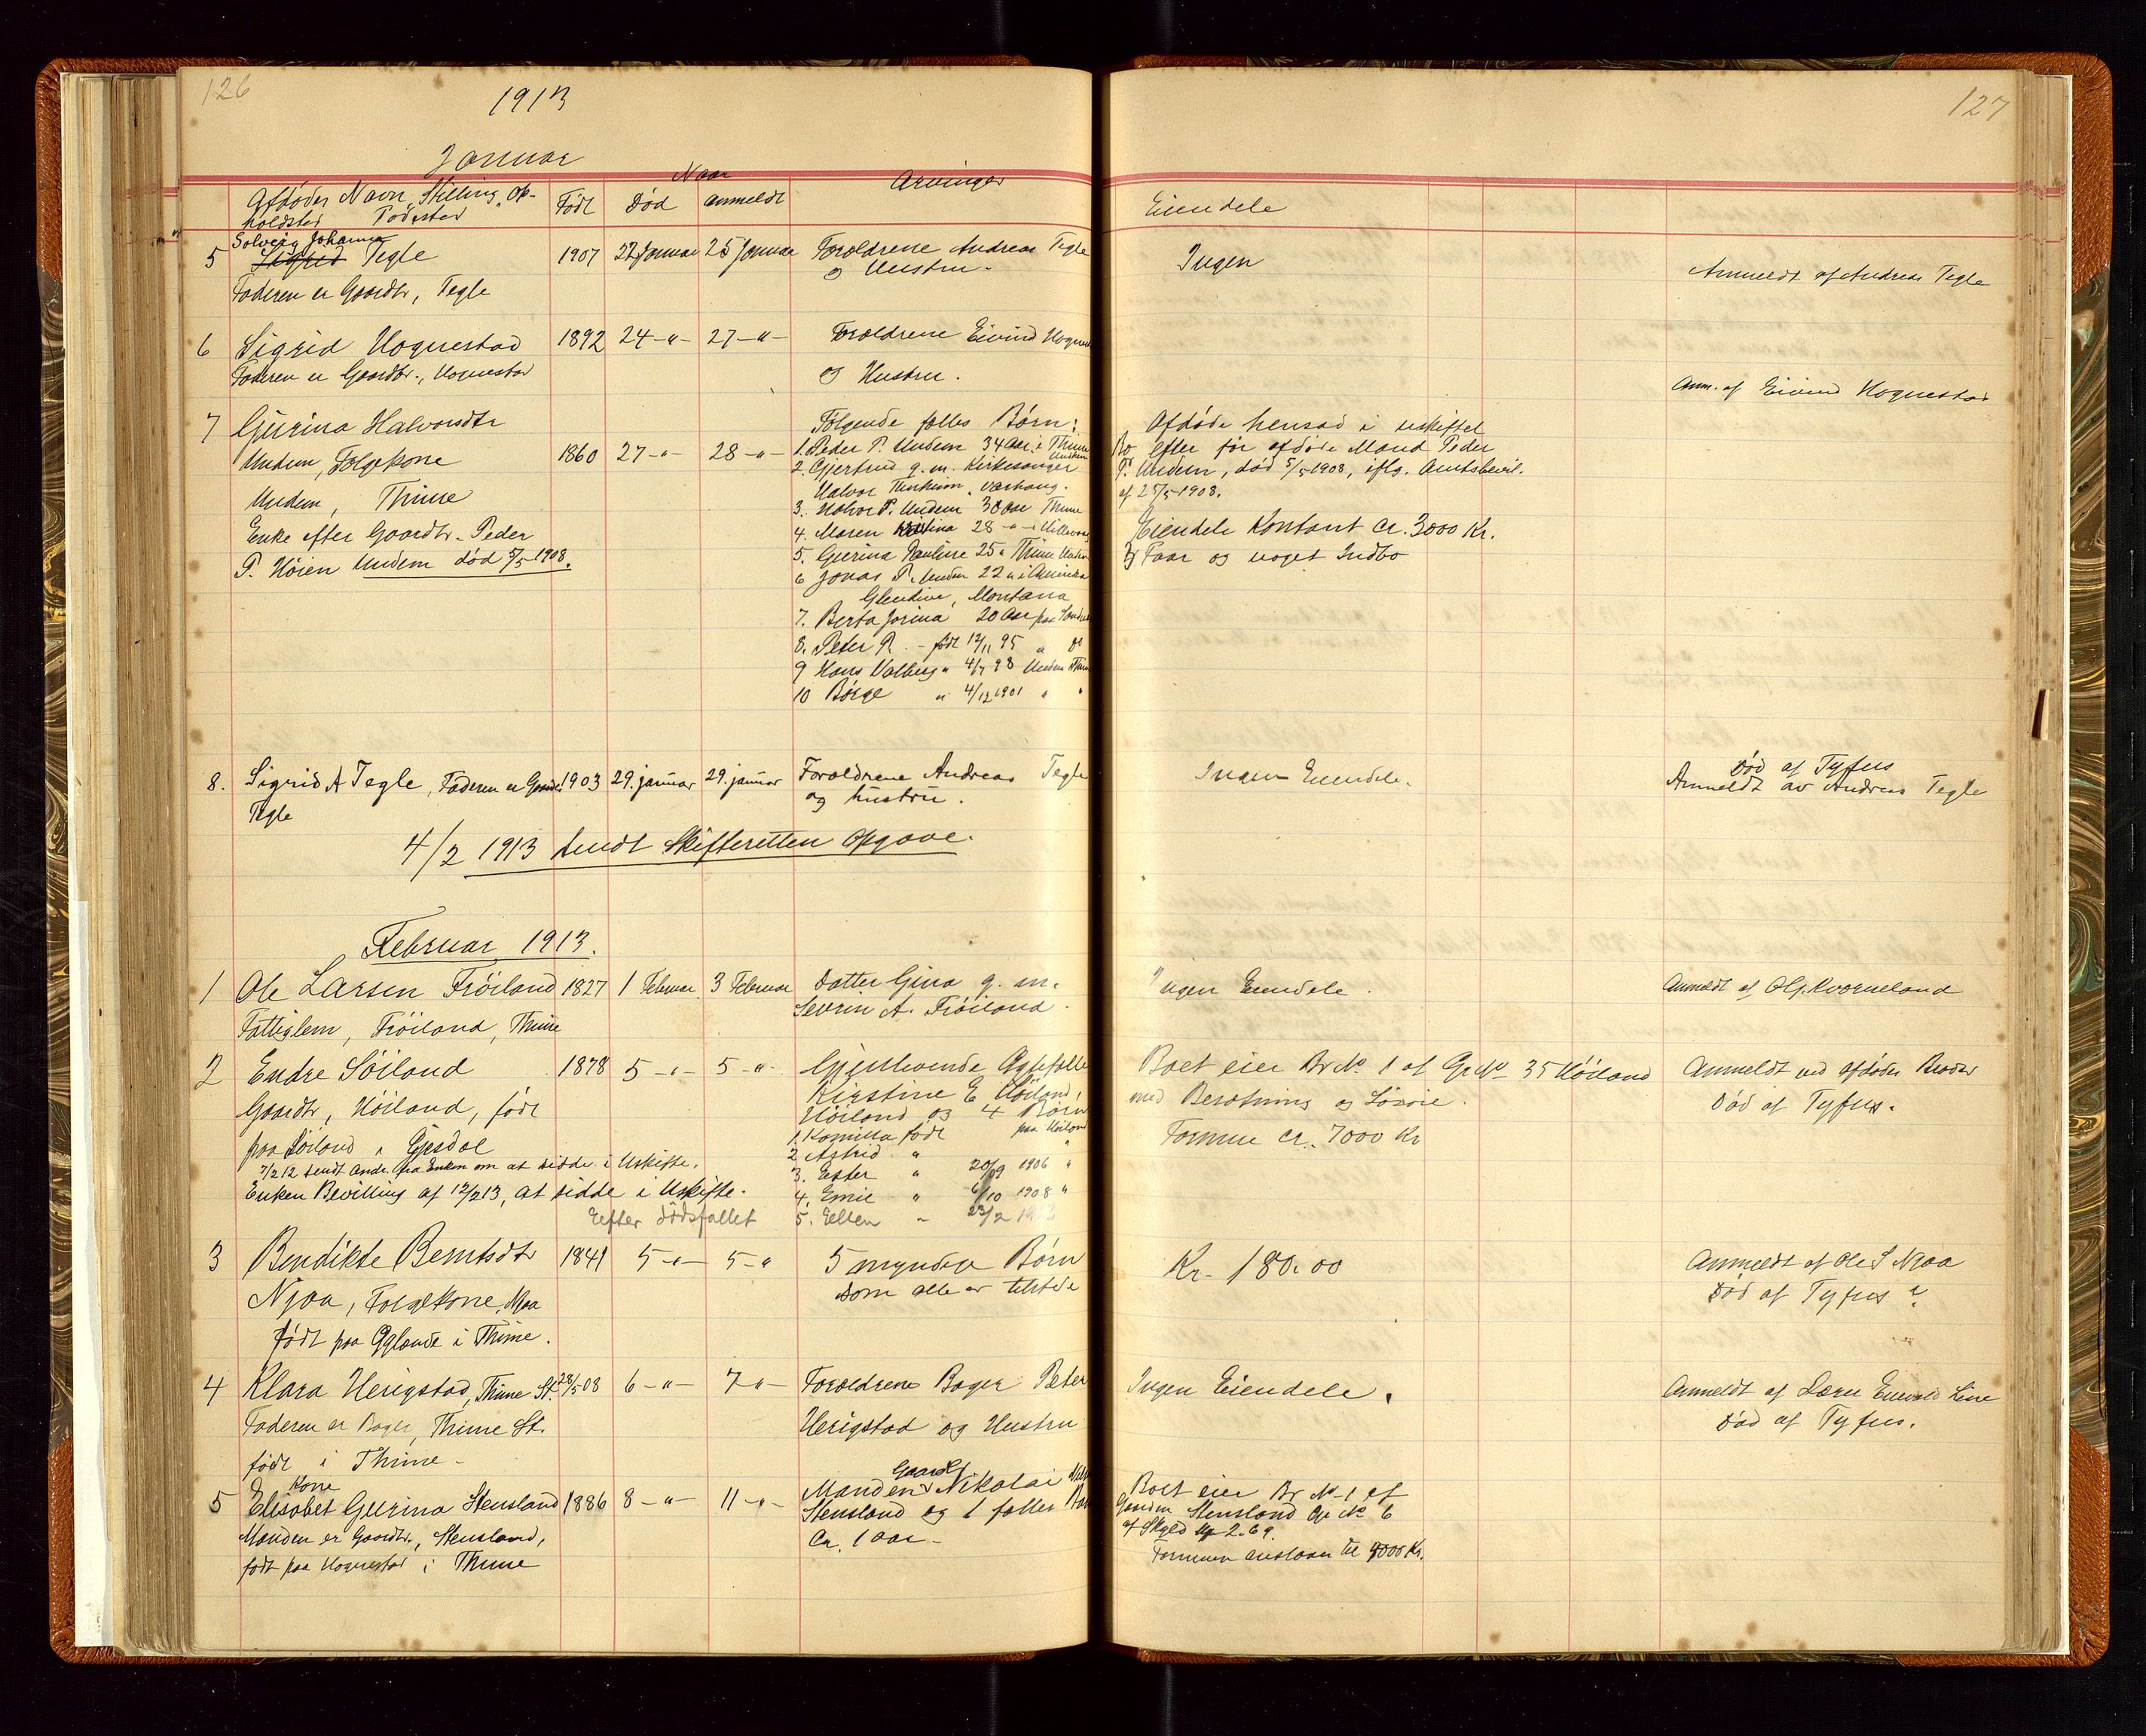 126
1913
Januar
Afdødes Navn, Stilling, Op-
holdsted Fødested
Født
Naar
Død
anmeldt
Arvinger
5 Solveig Johanna
Sigrid Tegle
1907 22 Januar 25 Januar
Faderen er Gaardbr, Tegle
Forældrene Andreas Tegle
og Hustru.
6 Sigrid Hognestad 1892 24 -"- 27 -"-
Faderen er Gaardbr., Hognestad
Forældrene Eivind
og Hustru.
7 Gurina Halvorsdtr
Undem, Folgekone 1860 27 -"- 28 -"-
Undem, Thime
Enke efter Gaardbr. Peder
P. Høien Undem død 5/5 1908.
Følgende fælles Børn:
1. Peder P. Undem 34 Aar i Thime
Undem
2. Gjertrud g. m. Kirkesanger
Halvor Varhaug.
3. Halvor P. Undem 30 Aar Thime
4. Maren Kristina 28 -"-
5. Gurina Pauline 25 " Thime Undem
6 Jonas P. Undem 22 " i Amerika
Glendive, Montana
7. Berta Jorina 20 Aar paa
8. Peter P. - født 12/11 95 " do
9 Hans Valberg " 4/7 98 Undem Thime
10 Børge " 4/12 1901 " "
8. Sigrid A Tegle, Faderen er Gaardbr 1903 29. januar 29. januar
Tegle
Forældrene Andreas Tegle
og hustru.
4/2 1913 sendt Skifteretten Opgave.
Februar 1913.
1 Ole Larsen Frøiland 1827 1 Februar 3 Februar
Fattiglem, Frøiland, Thime
Datter Gina g. m.
Sevrin A. Frøiland.
2 Endre Søiland 1878 5 -"- 5 -"-
Gaardbr, Høiland, født
paa Søiland i Gjesdal
7/2 12 sendt Andr. fra Enken om at sidde i Uskifte.
Enken Bevilling af 12/2 13, at sidde i Uskifte.
Efter dødsfallet
Gjenlevende Ægtefælle
Kirstine E Høiland,
Høiland og 4 Børn
1. Kamilla født paa Høiland
2 Astrid " "
3. Ester " 20/9 1906 "
4. Emil " 6/10 1908 "
5. Ellen " 23/2 1913
3 Bendikte Berntsdtr 1841 5 -"- 5 -"
Njaa, Folgekone, Njaa
født paa Øglænde i Thime.
5 myndige Børn
som alle er tilstede
4 Klara Herigstad, Thime St. 28/5 08 6 -"- 7 -"-
Faderen er Bager, Thime St.
født i Thime -
Forældrene Bager Peter
Herigstad og Hustru
5 Kone
Elisabet Gurina Stensland 1886 8 -"- 11 -"-
Manden er Gaardbr., Stensland,
født paa Hognestad i Thime
Gaardbr
Manden Nikolai
Stensland og 1 fælles
Ca. 1 Aar -
127
Eiendele
Ingen
Anmeldt af Andreas Tegle
Anm. af Eivind Hognestad
Afdøde hensad i uskiftet
Bo efter før afdøde Mand Peder
P. Undem, død 5/5 1908, iflg. Amtsbevil.
af 25/5 1908.
Eiendele Kontant ca. 3000 Kr.
Faar og noget Indbo
Ingen Eiendele.
Død af Tyfus
Anmeldt av Andreas Tegle
Ingen Eiendele.
Anmeldt af Olg. Kværneland
Boet eier Br No 1 af Gr No 35 Høiland
med Besætning og Løsøre.
Formue ca. 7000 Kr
Anmeldt ved afdødes Broder
Død af Tyfus.
Kr. 180.00
Anmeldt af Ole S Njaa
Død af Tyfus ?
Ingen Eiendele.
Anmeldt af Lærer Enevald Line
Død af Tyfus.
Boet eier Br No 1 af
Gaarden Stensland Gr No 6
af Skyld 2.69.
Formuen anslaaes til 4000 Kr.